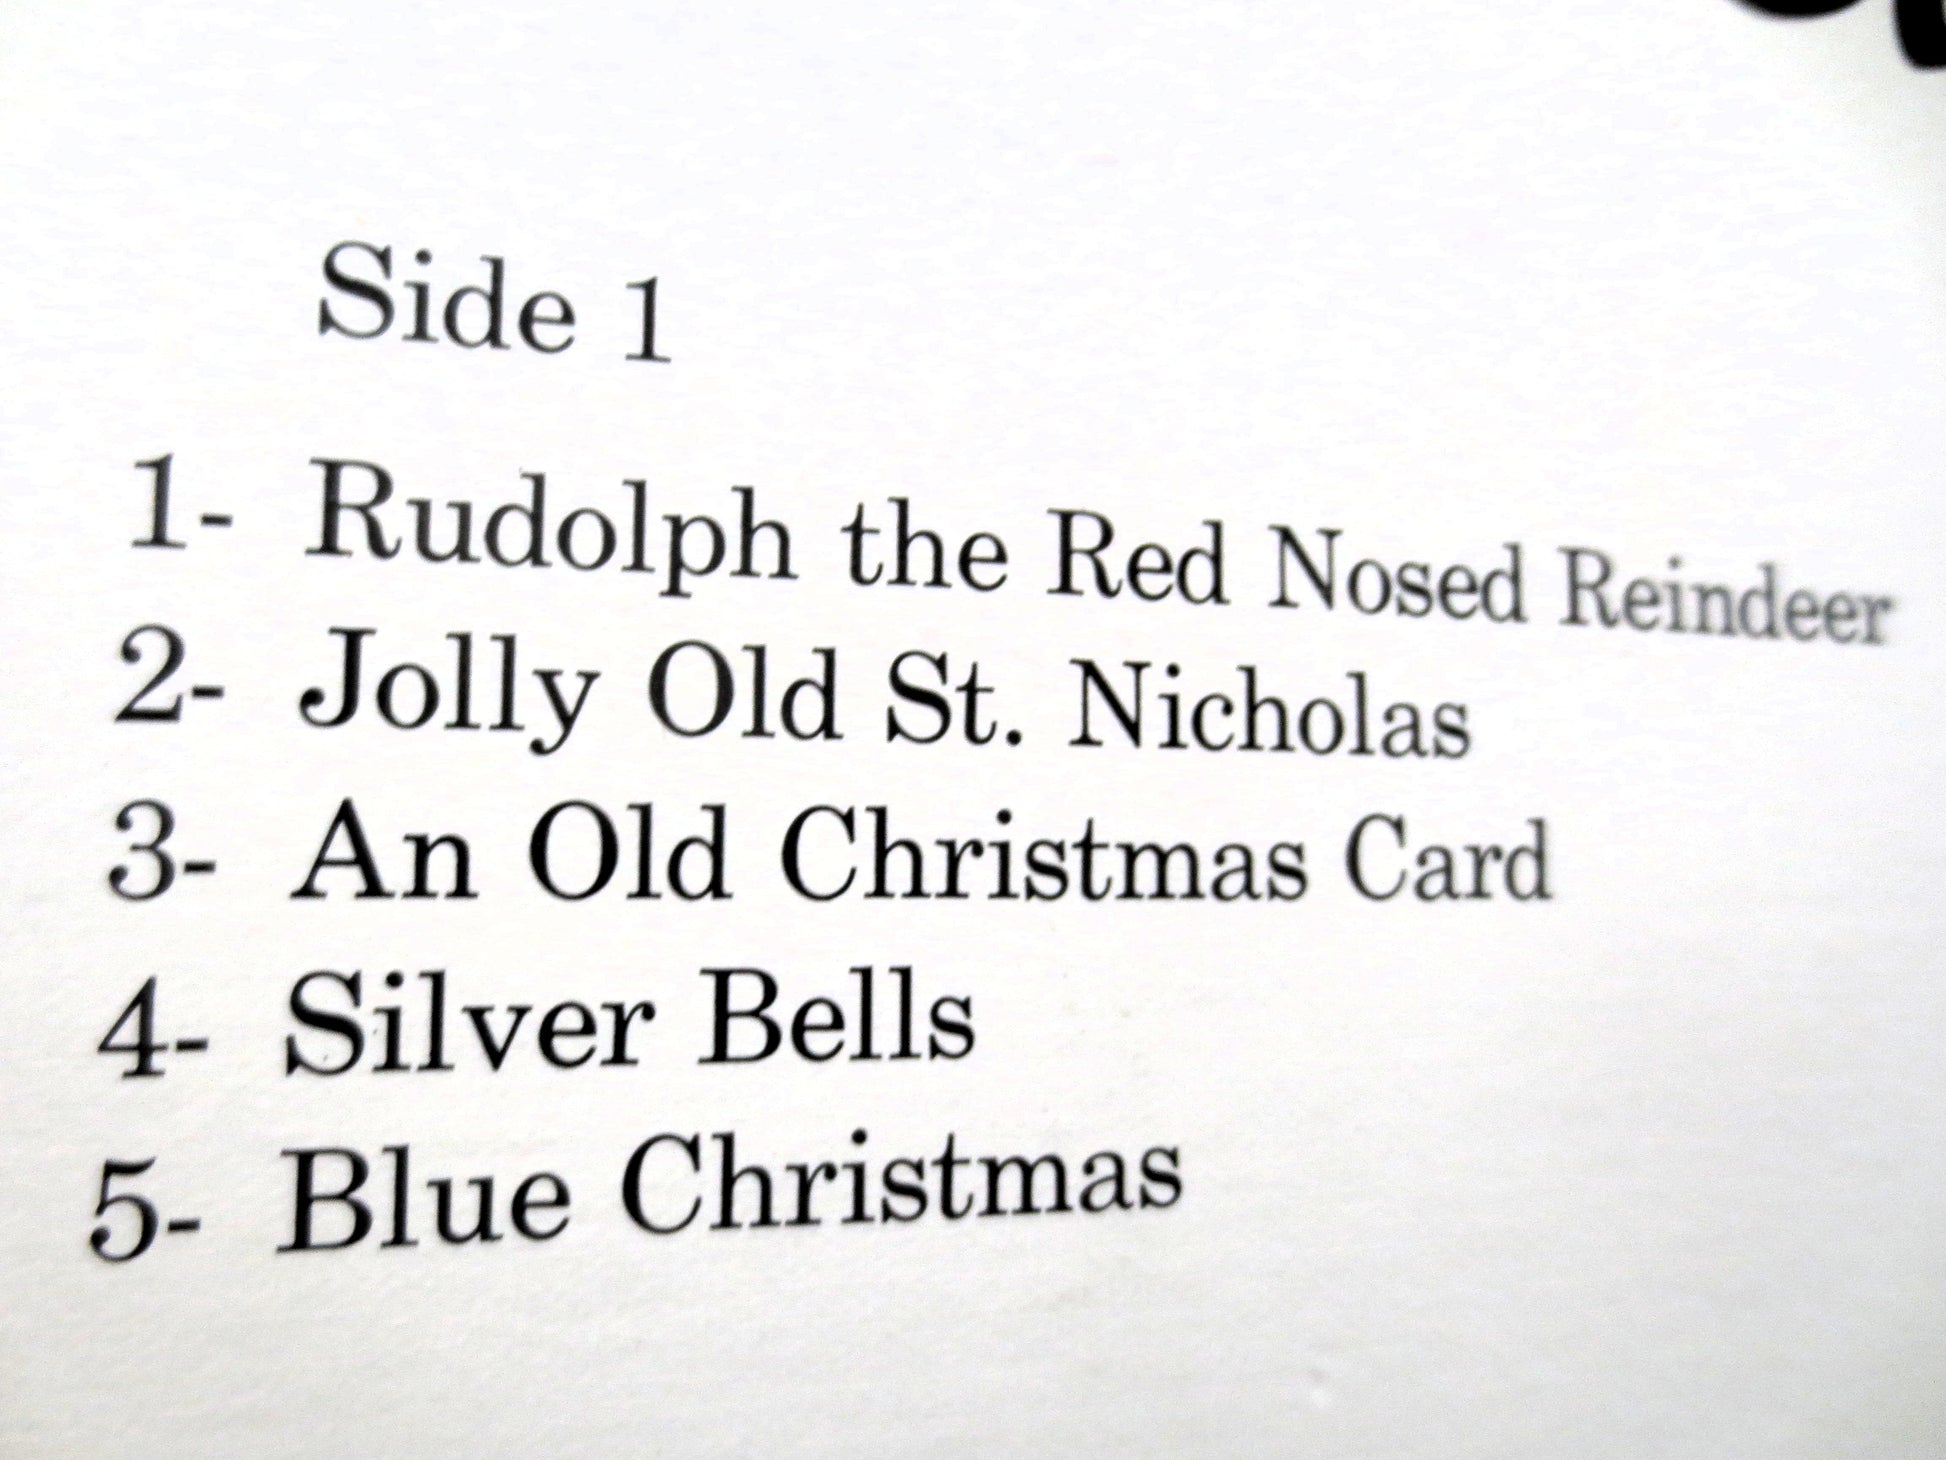 Side 1
1- Rudolph the Red Nosed Reindeer
2- Jolly Old St. Nicholas
3- An Old Christmas Card
4- Silver Bells
5- Blue Christmas